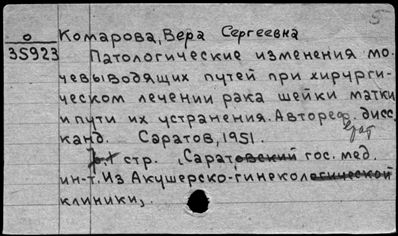 5
о Комарова, Вера Сергеевна
35923 Патологические изменения мо-
чевыводящих путей при хирурги-
ческом лечении рака шейки матки
и пути их устранения. Автореф. дисс.
канд. Саратов, 1951.
стр. (Саратовский гос. мед.
ин-т. Из Акушерско-гинекологической
клиники).